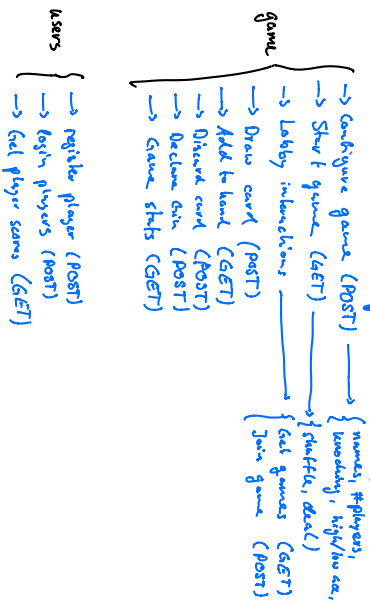 game
→ Configure game (POST) → { names, #players,
knocking, high/low ace,
→ Start game (GET) → { shuffle, deal }
→ Lobby interactions → { Get games (GET)
Join game (POST)
→ Draw card (POST)
→ Add to hand (GET)
→ Discard card (POST)
→ Declare Gin (POST)
→ Game stats (GET)
users
→ register player (POST)
→ login players (POST)
→ Get player scores (GET)